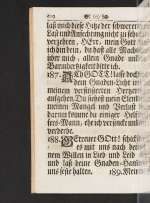 laß mich diese Hitze der schweren
Last und Anfechtung nicht zu sehr
verzehren, HErr, mein Gott
ich bin dein, du hast alle Macht
über mich, allein Gnade und
Barmhertzigkeit bitte ich.
187. ACh GOTT! lasse doch
dein Gnaden-Licht
meinem verfinsterten Hertzen
aufgehen. Du siehest mein Elend
meinen Mangel und Verlust
darum komme du einiger Helf-
fers-Mann, ehe ich versincke und
verderbe.
188. GEtreuer GOtt! schicke
es mit uns nach dei-
nem Willen in Lieb und Leid
und laß deine Gnaden-Hand
uns feste halten. 189. Mein